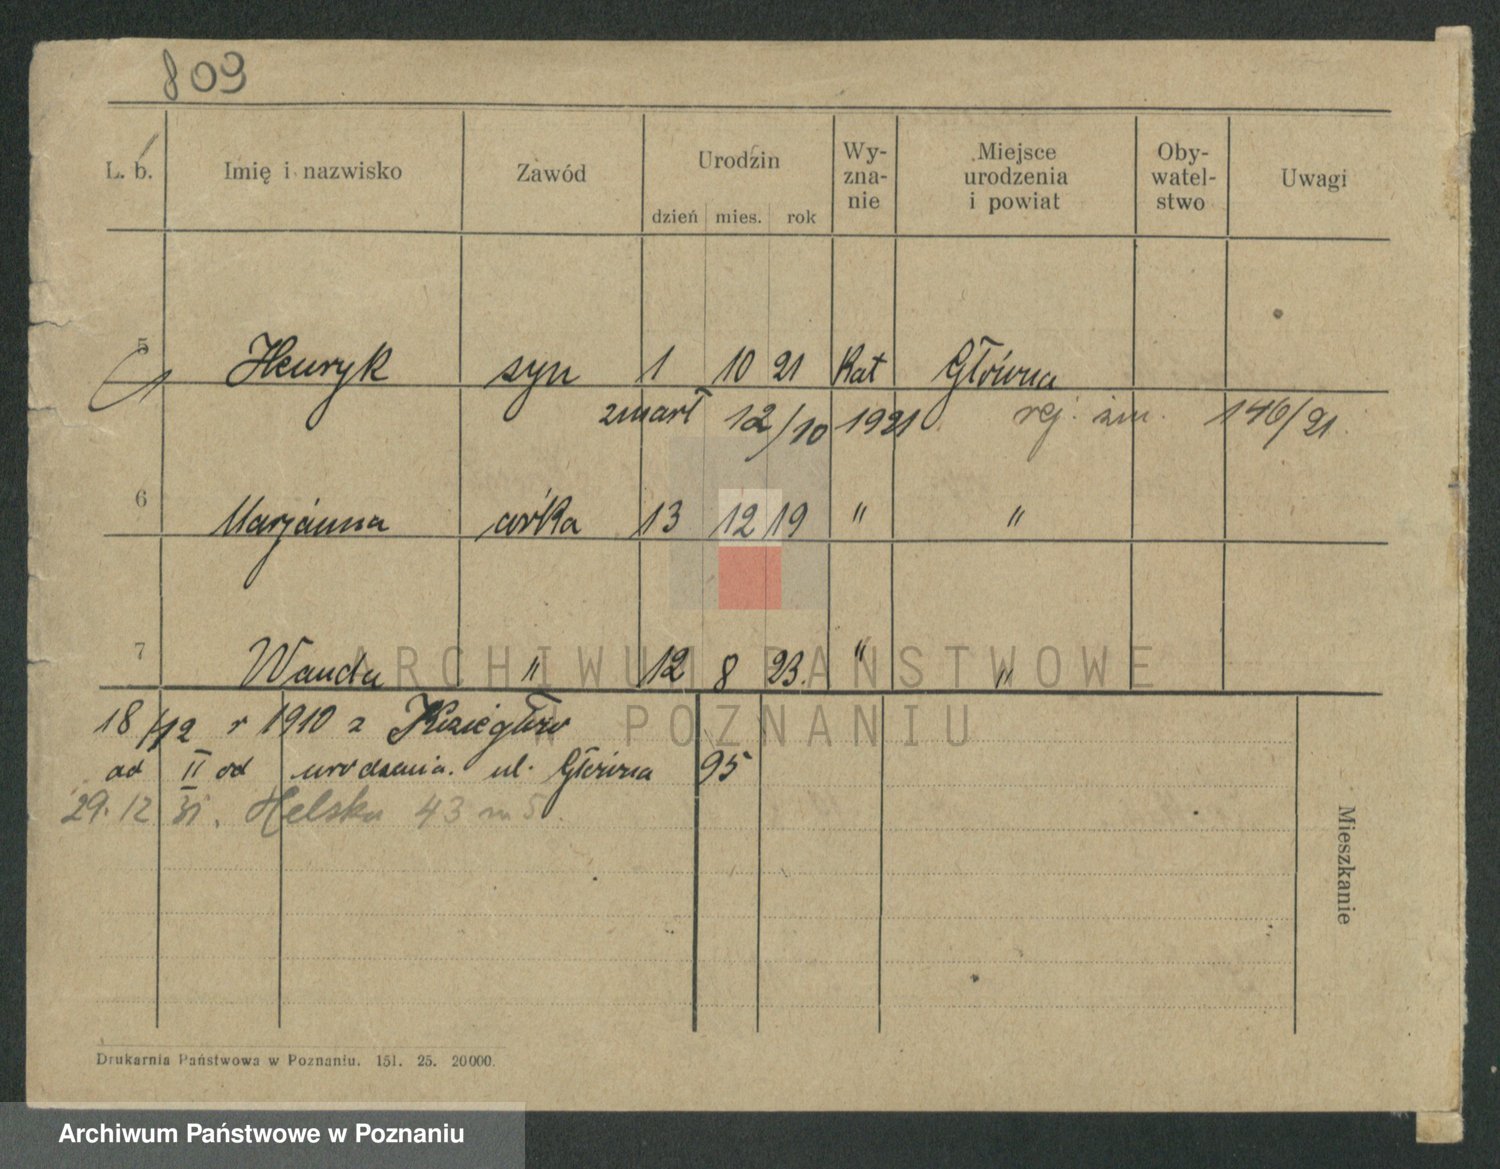 809
L. b. Imię i nazwisko Zawód Urodzin Wy-zna-nie Miejsce urodzenia i powiat Oby-watel-stwo Uwagi
dzień mies. rok
5 Henryk syn 1 10 21 Kat Główna
zmarł 12/10 1921 rej. zm. 146/21
6 Marjanna córka 13 12 19 " "
7 Wanda " 12 8 23. " "
ARCHIWUM PAŃSTWOWE
W POZNANIU
18/12 r 1910 z Koziegłow
ad II od urodzenia. ul. Główna 95
29.12 31. Helska 43 m 5.
Mieszkanie
Drukarnia Państwowa w Poznaniu. 151. 25. 20000.
Archiwum Państwowe w Poznaniu